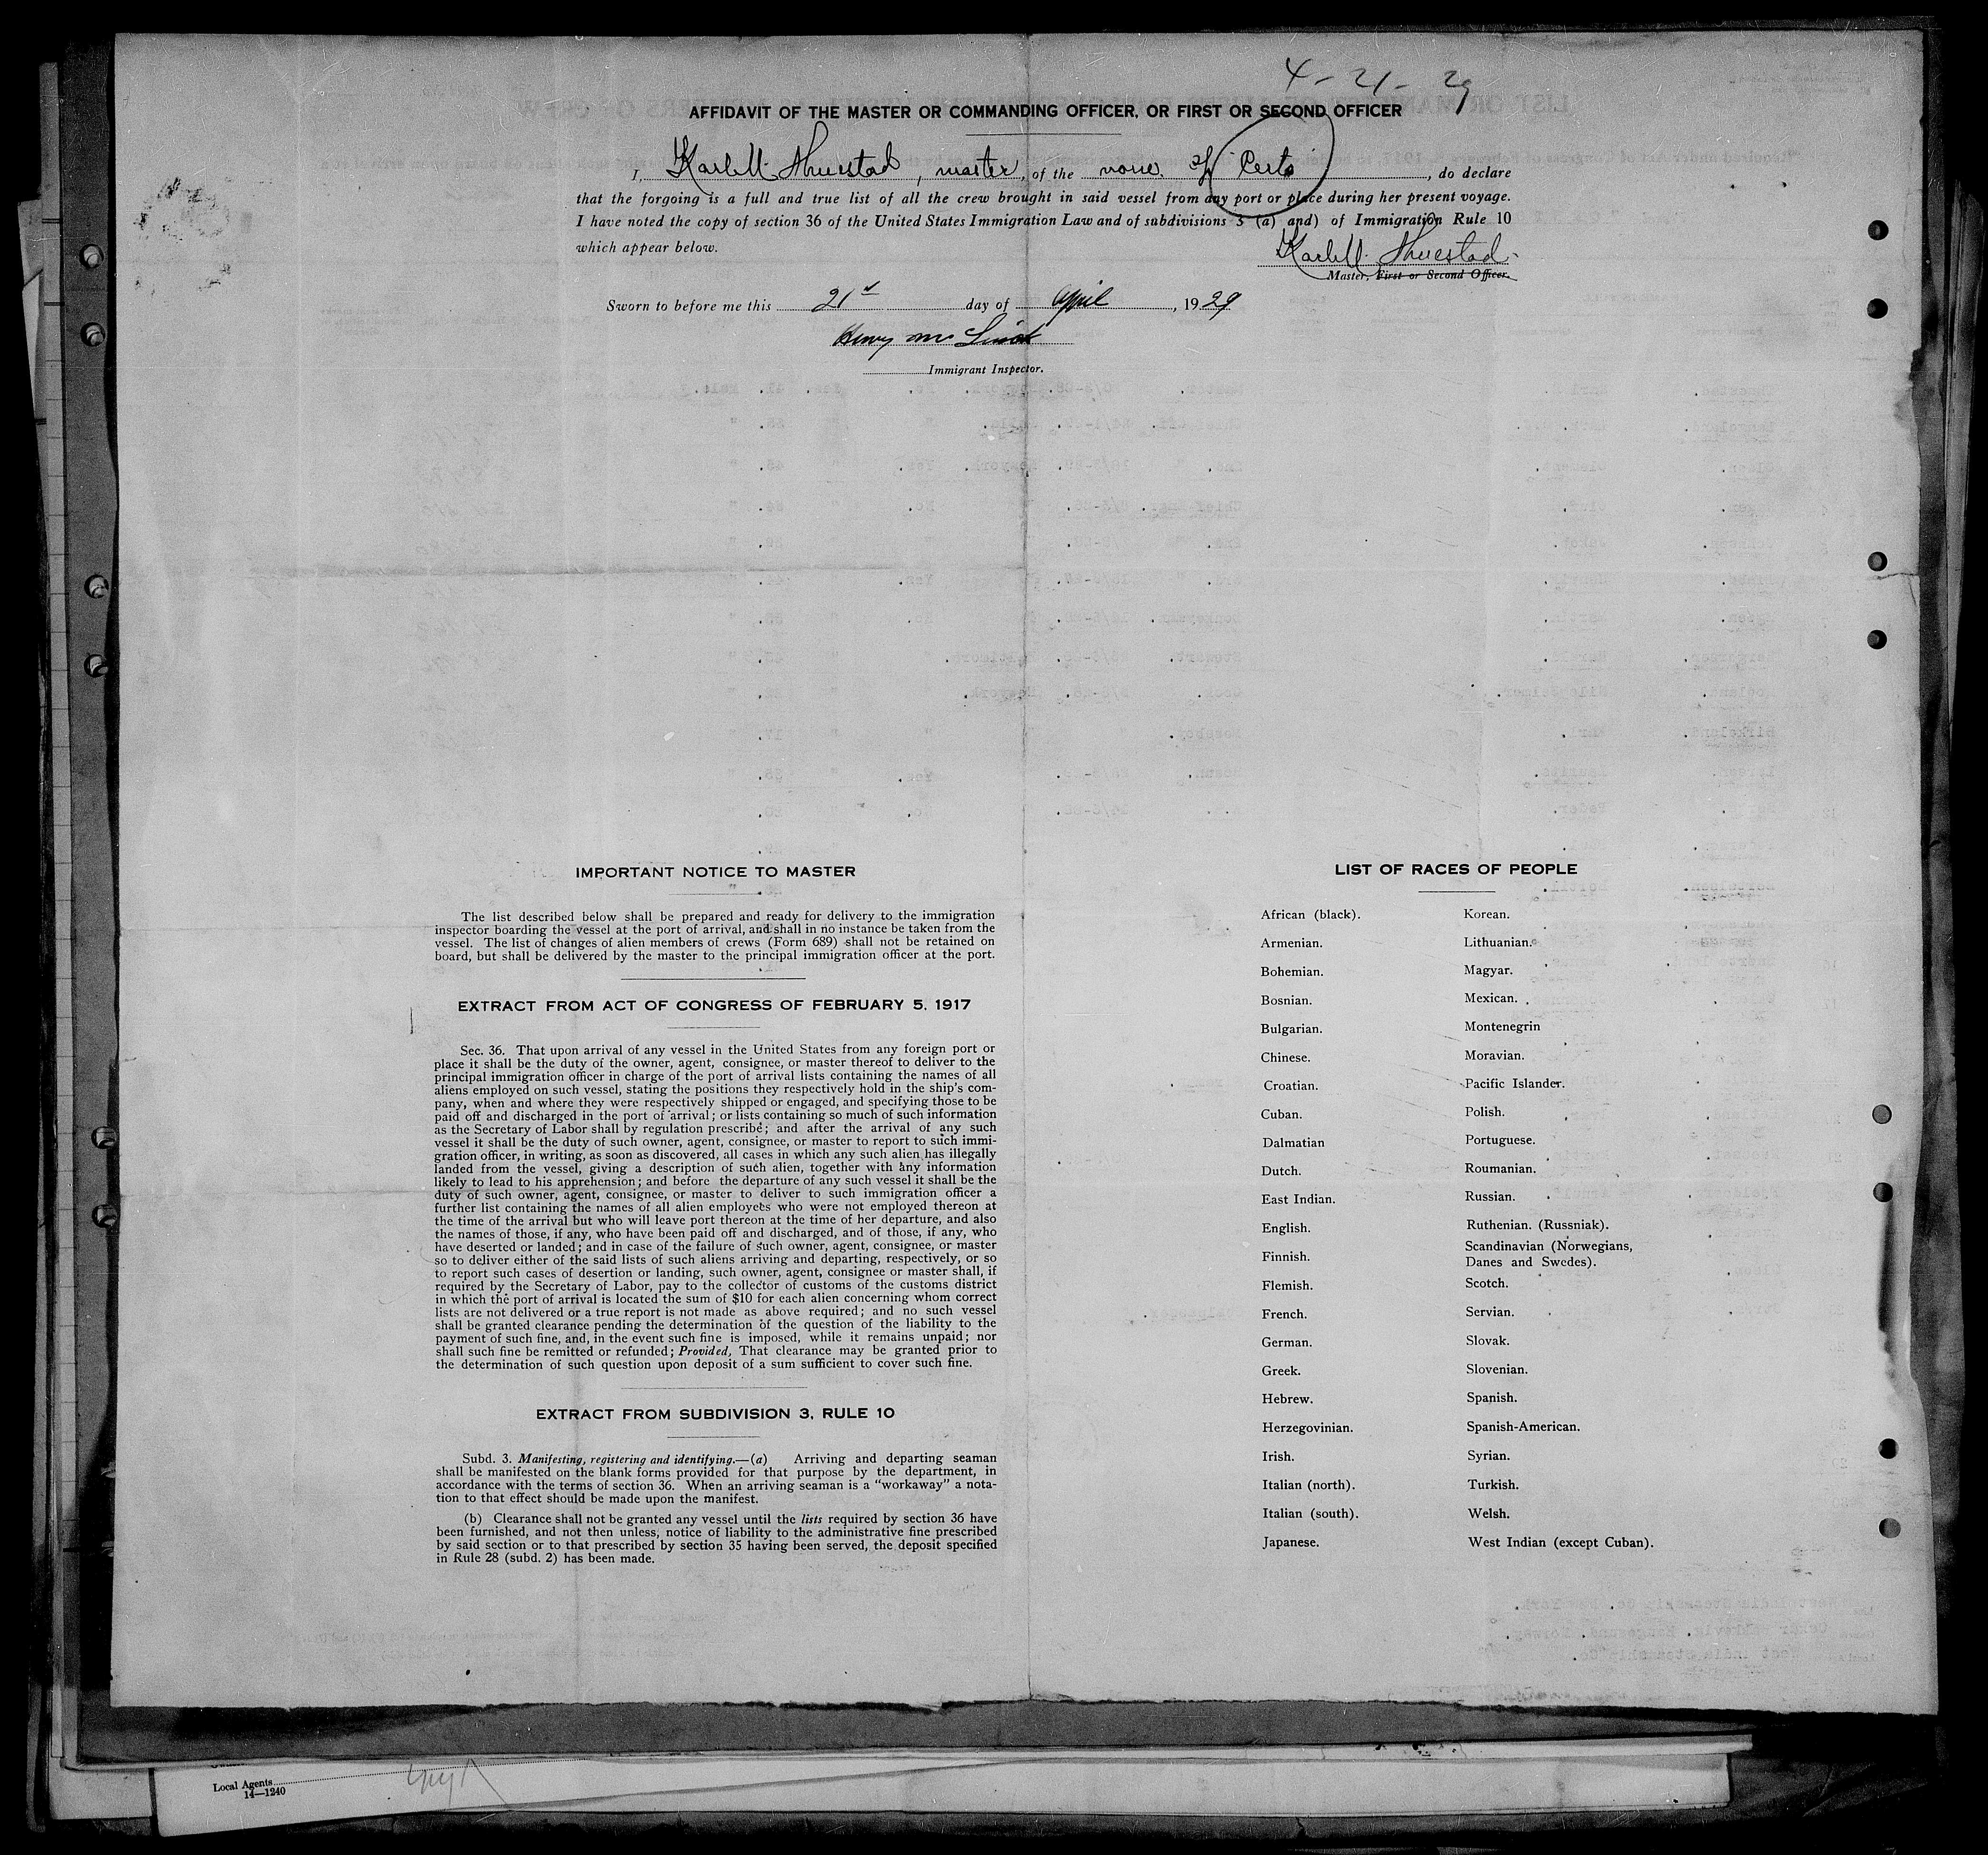 4-21-29
AFFIDAVIT OF THE MASTER OR COMMANDING OFFICER, OR FIRST OR SECOND OFFICER
I, Karl M. , master, of the norw. "Certo", do declare
that the forgoing is a full and true list of all the crew brought in said vessel from any port or place during her present voyage.
I have noted the copy of section 36 of the United States Immigration Law and of subdivisions 3 (a) and) of Immigration Rule 10
which appear below.
Karl M.
Master, First or Second Officer.
Sworn to before me this 21st day of April, 1929
Henry Mc
Immigrant Inspector.
IMPORTANT NOTICE TO MASTER
The list described below shall be prepared and ready for delivery to the immigration
inspector boarding the vessel at the port of arrival, and shall in no instance be taken from the
vessel. The list of changes of alien members of crews (Form 689) shall not be retained on
board, but shall be delivered by the master to the principal immigration officer at the port.
EXTRACT FROM ACT OF CONGRESS OF FEBRUARY 5, 1917
Sec. 36. That upon arrival of any vessel in the United States from any foreign port or
place it shall be the duty of the owner, agent, consignee, or master thereof to deliver to the
principal immigration officer in charge of the port of arrival lists containing the names of all
aliens employed on such vessel, stating the positions they respectively hold in the ship's com-
pany, when and where they were respectively shipped or engaged, and specifying those to be
paid off and discharged in the port of arrival; or lists containing so much of such information
as the Secretary of Labor shall by regulation prescribe; and after the arrival of any such
vessel it shall be the duty of such owner, agent, consignee, or master to report to such immi-
gration officer, in writing, as soon as discovered, all cases in which any such alien has illegally
landed from the vessel, giving a description of such alien, together with any information
likely to lead to his apprehension; and before the departure of any such vessel it shall be the
duty of such owner, agent, consignee, or master to deliver to such immigration officer a
further list containing the names of all alien employees who were not employed thereon at
the time of the arrival but who will leave port thereon at the time of her departure, and also
the names of those, if any, who have been paid off and discharged, and of those, if any, who
have deserted or landed; and in case of the failure of such owner, agent, consignee, or master
so to deliver either of the said lists of such aliens arriving and departing, respectively, or so
to report such cases of desertion or landing, such owner, agent, consignee or master shall, if
required by the Secretary of Labor, pay to the collector of customs of the customs district
in which the port of arrival is located the sum of $10 for each alien concerning whom correct
lists are not delivered or a true report is not made as above required; and no such vessel
shall be granted clearance pending the determination of the question of the liability to the
payment of such fine, and, in the event such fine is imposed, while it remains unpaid; nor
shall such fine be remitted or refunded; Provided, That clearance may be granted prior to
the determination of such question upon deposit of a sum sufficient to cover such fine.
EXTRACT FROM SUBDIVISION 3, RULE 10
Subd. 3. Manifesting, registering and identifying.—(a) Arriving and departing seaman
shall be manifested on the blank forms provided for that purpose by the department, in
accordance with the terms of section 36. When an arriving seaman is a "workaway" a nota-
tion to that effect should be made upon the manifest.
(b) Clearance shall not be granted any vessel until the lists required by section 36 have
been furnished, and not then unless, notice of liability to the administrative fine prescribed
by said section or to that prescribed by section 35 having been served, the deposit specified
in Rule 28 (subd. 2) has been made.
LIST OF RACES OF PEOPLE
African (black).
Armenian.
Bohemian.
Bosnian.
Bulgarian.
Chinese.
Croatian.
Cuban.
Dalmatian
Dutch.
East Indian.
English.
Finnish.
Flemish.
French.
German.
Greek.
Hebrew.
Herzegovinian.
Irish.
Italian (north).
Italian (south).
Japanese.
Korean.
Lithuanian.
Magyar.
Mexican.
Montenegrin
Moravian.
Pacific Islander.
Polish.
Portuguese.
Roumanian.
Russian.
Ruthenian. (Russniak).
Scandinavian (Norwegians,
Danes and Swedes).
Scotch.
Servian.
Slovak.
Slovenian.
Spanish.
Spanish-American.
Syrian.
Turkish.
Welsh.
West Indian (except Cuban).
Local Agents
14—1240